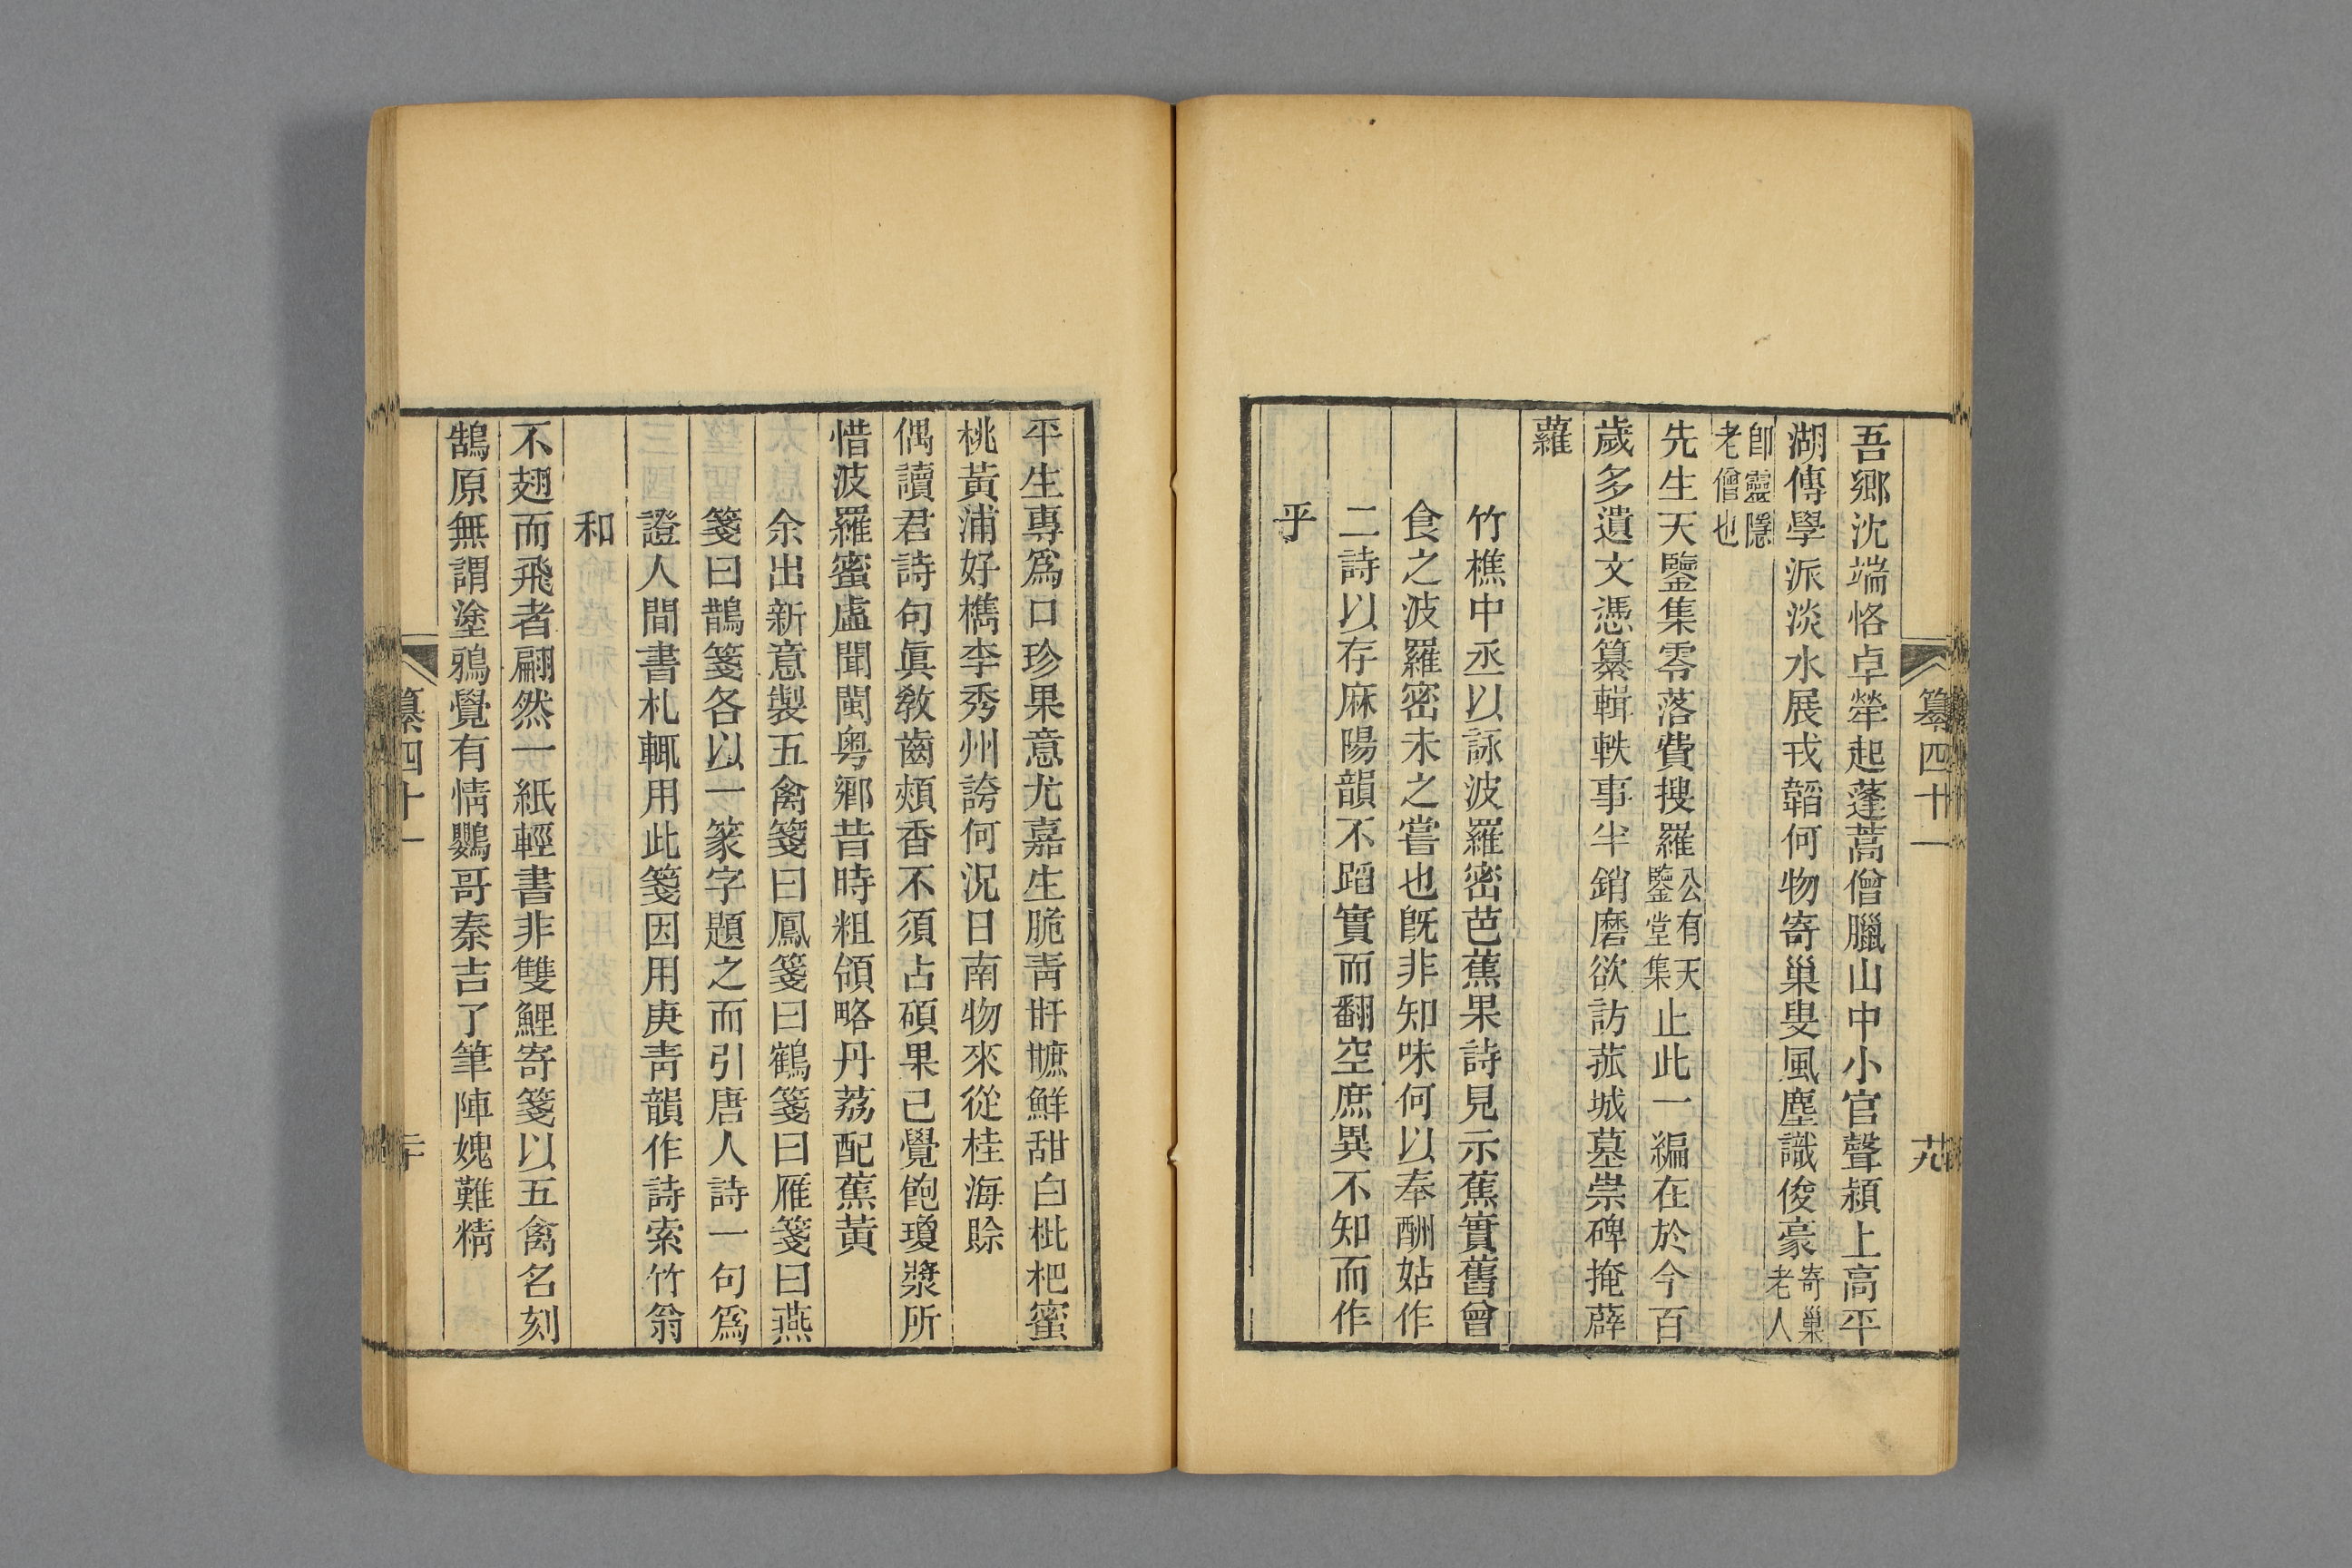 纂四十一
吾鄉沈端恪卓犖起蓬蒿僧臘山中小官聲潁上高平
湖傳學派淡水展戎韜何物寄巢叟風塵識俊豪寄巢老人
卽靈隱老僧也
先生天鑒集零落費搜羅公有天鑒堂集止此一編在於今百
歲多遺文憑纂輯軼事半銷磨欲訪菰城墓崇碑掩薜
蘿
竹樵中丞以詠波羅密芭蕉果詩見示蕉實舊曾
食之波羅密未之嘗也旣非知味何以奉酬姑作
二詩以存麻陽韻不蹈實而翻空庶異不知而作
乎
平生專爲口珍果意尤嘉生脆靑㽏䗪鮮甜白枇杷蜜
桃黃浦好檇李秀州誇何況日南物來從桂海賒
偶讀君詩句眞敎齒頰香不須占碩果已覺飽瓊漿所
惜波羅蜜虛聞閩粵鄉昔時粗領略丹荔配蕉黃
余出新意製五禽箋曰鳳箋曰鶴箋曰雁箋曰燕
箋曰鵲箋各以一篆字題之而引唐人詩一句爲
證人間書札輒用此箋因用庚靑韻作詩索竹翁
和
不翅而飛者翩然一紙輕書非雙鯉寄箋以五禽名刻
鵠原無謂塗鴉覺有情鸚哥秦吉了筆陣媿難精
纂四十一